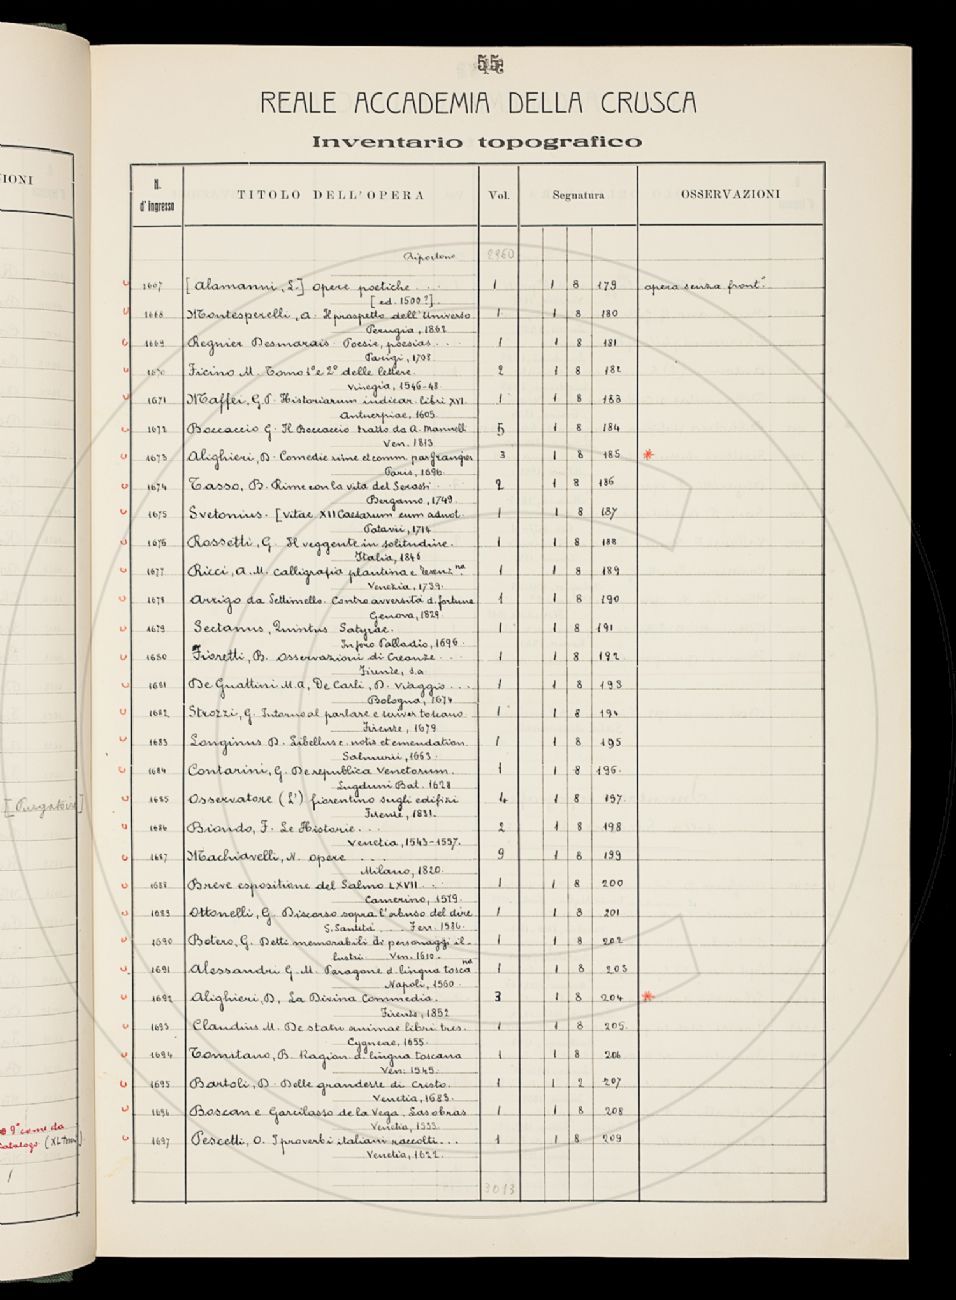 IONI
[Purgatorio]
e 9° come da
Catalogo (XL
55
REALE ACCADEMIA DELLA CRUSCA
Inventario topografico
N. d'ingresso TITOLO DELL'OPERA Vol. Segnatura OSSERVAZIONI
Riportono 2960
1667 [Alamanni, L.] opere poetiche . . . 1 1 8 179 opera senza front.e
[ed. 1500?].
1668 Montesperelli, A. Il prospetto dell'Universo 1 1 8 180
Perugia, 1862
1669 Regnier Desmarais Poesie, poesias . . . 1 1 8 181
Parigi, 1708
1670 Ficino M. Tomo 1° e 2° delle lettere. 2 1 8 182
Vinegia, 1546-48.
1671 Maffei, G.P. Historiarum indicar. libri XVI. 1 1 8 183
Antuerpiae, 1605.
1672 Boccaccio G. Il Boccaccio tratto da A. Mannelli 5 1 8 184
Ven. 1813
1673 Alighieri, D. Comedie rime et comm. par Grangier 3 1 8 185 *
Paris, 1596.
1674 Tasso, B. Rime con la vita del Serassi 2 1 8 186
Bergamo, 1749
1675 Svetonius. [Vitae XII Caesarum cum adnot. 1 1 8 187
Patavii, 1714.
1676 Rossetti, G. Il veggente in solitudine. 1 1 8 188
Italia, 1846
1677 Ricci, A. M. Calligrafia plantina e terenz.na 1 1 8 189
Venezia, 1739.
1678 Arrigo da Settimello. Contro avversità d. fortuna 1 1 8 190
Genova, 1829.
1679 Sectanus, Quintus Satyrae. 1 1 8 191
In foro Palladio, 1696.
1680 Fioretti, B. Osservazioni di Creanze . . . 1 1 8 192
Firenze, s.a
1681 De Guattini M.A, De Carli, D. Viaggio . . . 1 1 8 193
Bologna, 1674
1682 Strozzi, G. Intorno al parlare e scriver toscano 1 1 8 194
Firenze, 1679
1683 Longinus D. Libellus c. notis et emendation. 1 1 8 195
Salmurii, 1663.
1684 Contarini, G. De republica Venetorum. 1 1 8 196.
Lugduni Bat. 1628
1685 Osservatore (L') fiorentino sugli edifizi 4 1 8 197.
Firenze, 1831.
1686 Biondo, F. Le Historie. . . 2 1 8 198
Venetia, 1543-1557.
1687 Machiavelli, N. opere . . . 9 1 8 199
Milano, 1820.
1688 Breve espositione del Salmo LXVII . . 1 1 8 200
Camerino, 1579.
1689 Ottonelli, G. Discorso sopra l'abuso del dire 1 1 8 201
S. Santità . . . Ferr. 1586.
1690 Botero, G. Detti memorabili di personaggi il- 1 1 8 202
lustri Ven. 1610.
1691 Alessandri G. M. Paragone d. lingua toscana 1 1 8 203
Napoli, 1560.
1692 Alighieri, D, La Divina Commedia. 3 1 8 204 *
Firenze, 1852
1693 Claudius M. De statu animae libri tres. 1 1 8 205.
Cygneae, 1655.
1694 Tomitano, B. Ragion. d. lingua toscana 1 1 8 206
Ven. 1545.
1695 Bartoli, D. Delle grandezze di Cristo. 1 1 2 207
Venetia, 1683.
1696 Boscan e Garcilasso de la Vega. Las obras 1 1 8 208
Venetia, 1553.
1697 Pescetti, O. I proverbi italiani raccolti . . . 1 1 8 209
Venetia, 1622.
3013